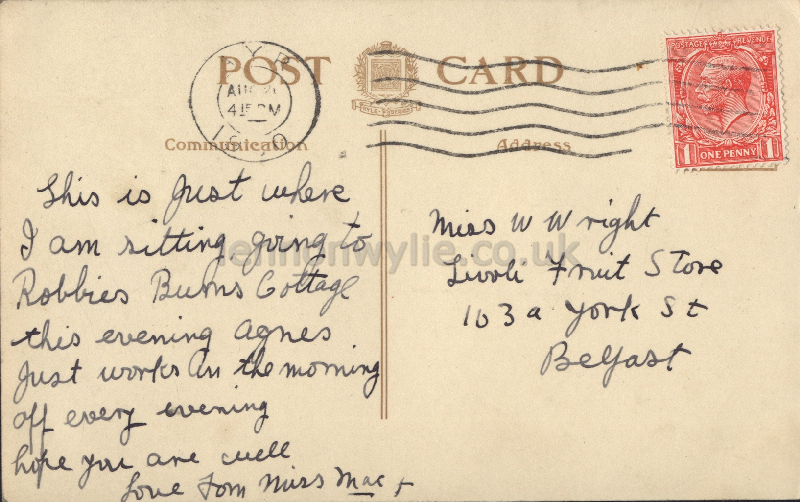 POST CARD
AYR
AUG 20
415 PM
POSTAGE REVENUE
1 ONE PENNY 1
Communication
Address
This is Just where
I am sitting, going to
Robbies Burns Cottage
this evening Agnes
Just works in the morning
off every evening
hope you are well
Love from Miss Mac x
Miss W Wright
Tivoli Fruit Store
103a York St
Belfast
lennonwylie.co.uk